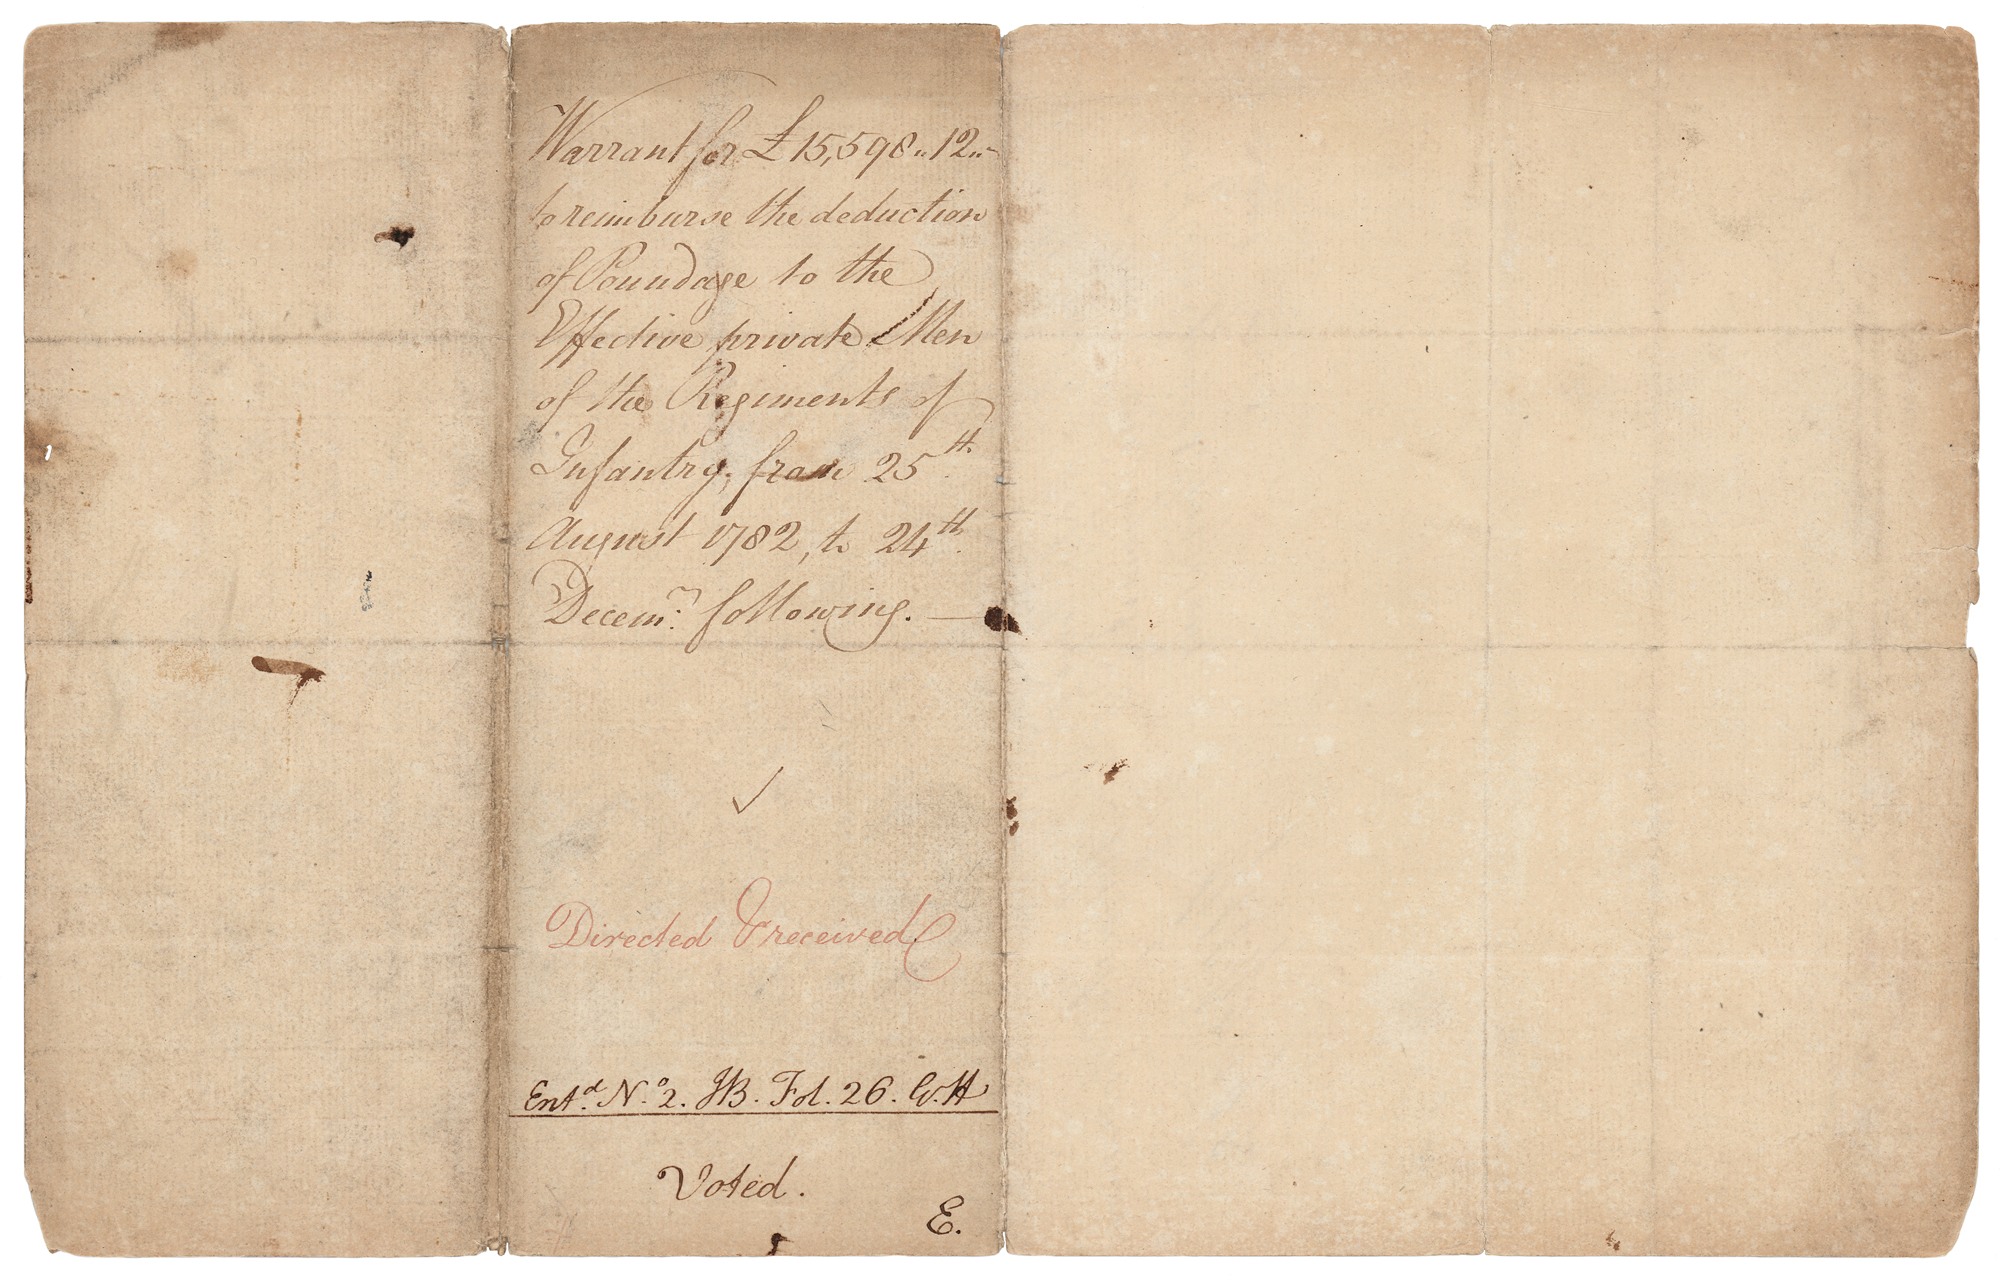 Warrant for £15,598„12„-
to reimburse the deduction
of Poundage to the
Effective private Men
of the Regiments of
Infantry, from 25th.
August 1782, to 24th.
Decemr: following. —
✓
Directed & received
Entd. No. 2. JB. Fol. 26. G.H
Voted.
E.